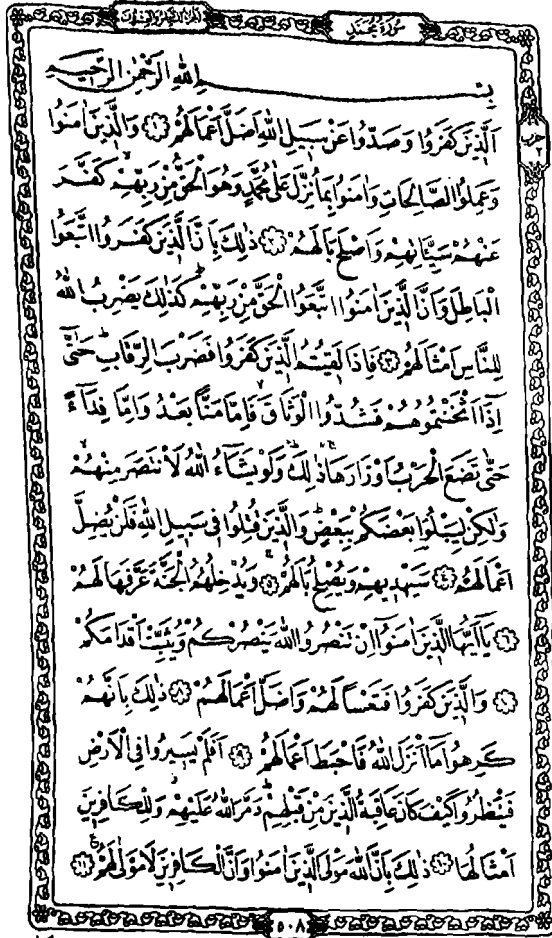 الجزء السادس والعشرون سورة محمد
بِسْمِ اللهِ الرَّحْمٰنِ الرَّحِيمِ
اَلَّذِينَ كَفَرُوا وَصَدُّوا عَنْ سَبِيلِ اللهِ اَضَلَّ اَعْمَالَهُمْ ﴿١﴾ وَالَّذِينَ اٰمَنُوا
وَعَمِلُوا الصَّالِحَاتِ وَاٰمَنُوا بِمَا نُزِّلَ عَلٰى مُحَمَّدٍ وَهُوَ الْحَقُّ مِنْ رَبِّهِمْۙ كَفَّرَ
عَنْهُمْ سَيِّـَٔاتِهِمْ وَاَصْلَحَ بَالَهُمْ ﴿٢﴾ ذٰلِكَ بِاَنَّ الَّذِينَ كَفَرُوا اتَّبَعُوا
الْبَاطِلَ وَاَنَّ الَّذِينَ اٰمَنُوا اتَّبَعُوا الْحَقَّ مِنْ رَبِّهِمْۜ كَذٰلِكَ يَضْرِبُ اللهُ
لِلنَّاسِ اَمْثَالَهُمْ ﴿٣﴾ فَاِذَا لَقِيتُمُ الَّذِينَ كَفَرُوا فَضَرْبَ الرِّقَابِۜ حَتّٰٓى
اِذَٓا اَثْخَنْتُمُوهُمْ فَشُدُّوا الْوَثَاقَۙ فَاِمَّا مَنًّا بَعْدُ وَاِمَّا فِدَٓاءً
حَتّٰى تَضَعَ الْحَرْبُ اَوْزَارَهَاۚ ذٰلِكَۜ وَلَوْ يَشَٓاءُ اللهُ لَانْتَصَرَ مِنْهُمْۙ
وَلٰكِنْ لِيَبْلُوَ۬ا بَعْضَكُمْ بِبَعْضٍۜ وَالَّذِينَ قُتِلُوا فِي سَبِيلِ اللهِ فَلَنْ يُضِلَّ
اَعْمَالَهُمْ ﴿٤﴾ سَيَهْدِيهِمْ وَيُصْلِحُ بَالَهُمْۚ ﴿٥﴾ وَيُدْخِلُهُمُ الْجَنَّةَ عَرَّفَهَا لَهُمْ
﴿٦﴾ يَٓا اَيُّهَا الَّذِينَ اٰمَنُٓوا اِنْ تَنْصُرُوا اللهَ يَنْصُرْكُمْ وَيُثَبِّتْ اَقْدَامَكُمْ
﴿٧﴾ وَالَّذِينَ كَفَرُوا فَتَعْسًا لَهُمْ وَاَضَلَّ اَعْمَالَهُمْ ﴿٨﴾ ذٰلِكَ بِاَنَّهُمْ
كَرِهُوا مَٓا اَنْزَلَ اللهُ فَاَحْبَطَ اَعْمَالَهُمْ ﴿٩﴾ اَفَلَمْ يَسِيرُوا فِي الْاَرْضِ
فَيَنْظُرُوا كَيْفَ كَانَ عَاقِبَةُ الَّذِينَ مِنْ قَبْلِهِمْۜ دَمَّرَ اللهُ عَلَيْهِمْۘ وَلِلْكَافِرِينَ
اَمْثَالُهَا ﴿١٠﴾ ذٰلِكَ بِاَنَّ اللهَ مَوْلَى الَّذِينَ اٰمَنُوا وَاَنَّ الْكَافِرِينَ لَا مَوْلٰى لَهُمْ۟ ﴿١١﴾
٥٠٨
حزب